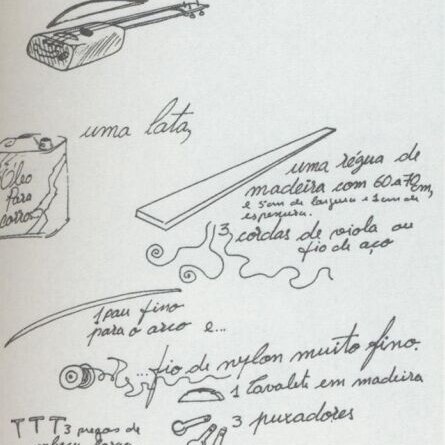 uma lata,
Óleo
Para
carros
uma régua de
madeira com 60 a 70 cm,
e 5 cm de largura e 1 cm de
espessura.
3
cordas de viola ou
fio de aço
1 pau fino
para o arco e...
...fio de nylon muito fino.
1 Cavalete em madeira
3 pregos de
3 puxadores